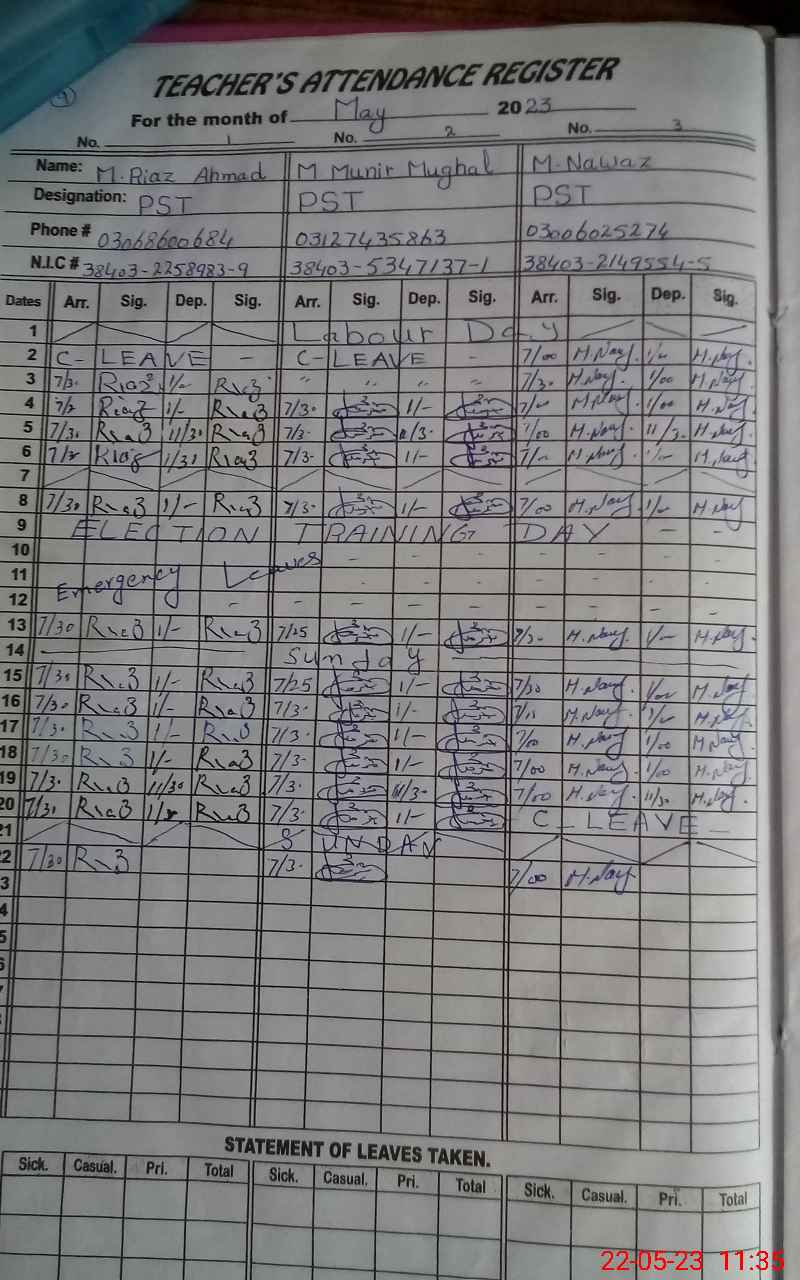 9
TEACHER'S ATTENDANCE REGISTER
For the month of May 2023
No. 1 No. 2 No. 3
Name: M. Riaz Ahmad M Munir Mughal M. Nawaz
Designation: PST PST PST
Phone # 03068600684 03127435863 03006025274
N.I.C # 38403-2258983-9 38403-5347137-1 38403-2149554-5
Dates Arr. Sig. Dep. Sig. Arr. Sig. Dep. Sig. Arr. Sig. Dep. Sig.
1 Labour Day
2 C-LEAVE - C-LEAVE - 7/00 M.Nawf. 1/- M.Nawf.
3 7/3. Riaz 1/- Riaz " " " " 7/30 M.Nawf. 1/00 M.Nawf.
4 Riaz 1/- Riaz 7/3. 1/- M.Nawf. 1/00 M.Nawf.
5 7/30 Riaz 11/30 Riaz 7/3. 11/3. M.Nawf. 11/3. M.Nawf.
6 Riaz Riaz 7/3. 1/- M.Nawf. M.Nawf.
7
8 7/30 Riaz 1/- Riaz 7/3. 1/- 7/00 M.Nawf. 1/- M.Nawf.
9 ELECTION TRAINING DAY - -
10 - - - - - - -
11 Emergency Leaves
12 - - - - - - - - -
13 7/30 Riaz 1/- Riaz 7/25 1/- M.Nawf. M.Nawf.
14 Sunday
15 7/30 Riaz 1/- Riaz 7/25 1/- 7/30 M.Nawf. M.Nawf.
16 7/30 Riaz 1/- Riaz 7/3. 1/- M.Nawf. M.Nawf.
17 7/30 Riaz 1/- Riaz 7/3. 1/- 7/00 M.Nawf. 1/00 M.Nawf.
18 7/30 Riaz 1/- Riaz 7/3. 1/- 7/00 M.Nawf. 1/00 M.Nawf.
19 7/30 Riaz 11/30 Riaz 7/3. 11/3. 7/00 M.Nawf. 11/30 M.Nawf.
20 7/30 Riaz Riaz 7/3. 1/- C-LEAVE-
21 SUNDAY
2 7/30 Riaz 7/3. 7/00 M.Nawf
3
4
5
6
7
STATEMENT OF LEAVES TAKEN.
Sick. Casual. Pri. Total Sick. Casual. Pri. Total Sick. Casual. Pri. Total
22-05-23 11:35